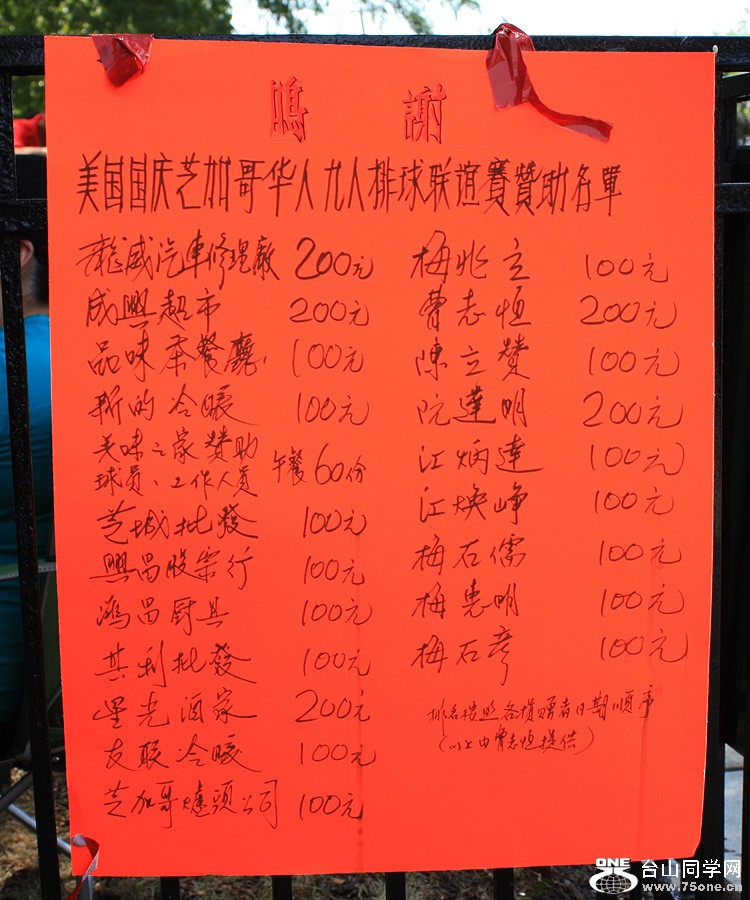 鳴謝
美国国庆芝加哥华人九人排球联谊賽贊助名單
龍威汽車修理廠 200元
成興超市 200元
品味茶餐廳 100元
新的冷暖 100元
美味之家贊助
球员、工作人员 午餐60份
芝城批發 100元
興昌股票行 100元
鴻昌厨具 100元
其利批發 100元
星光酒家 200元
友联冷暖 100元
芝加哥爐頭公司 100元
梅兆立 100元
曹志恒 200元
陳立贊 100元
阮達明 200元
江炳達 100元
江焕峥 100元
梅石儒 100元
梅惠明 100元
梅石彦 100元
排名按照各捐赠者日期順序
(以上由曹志恒提供)
ONE 台山同学网
www.75one.cn